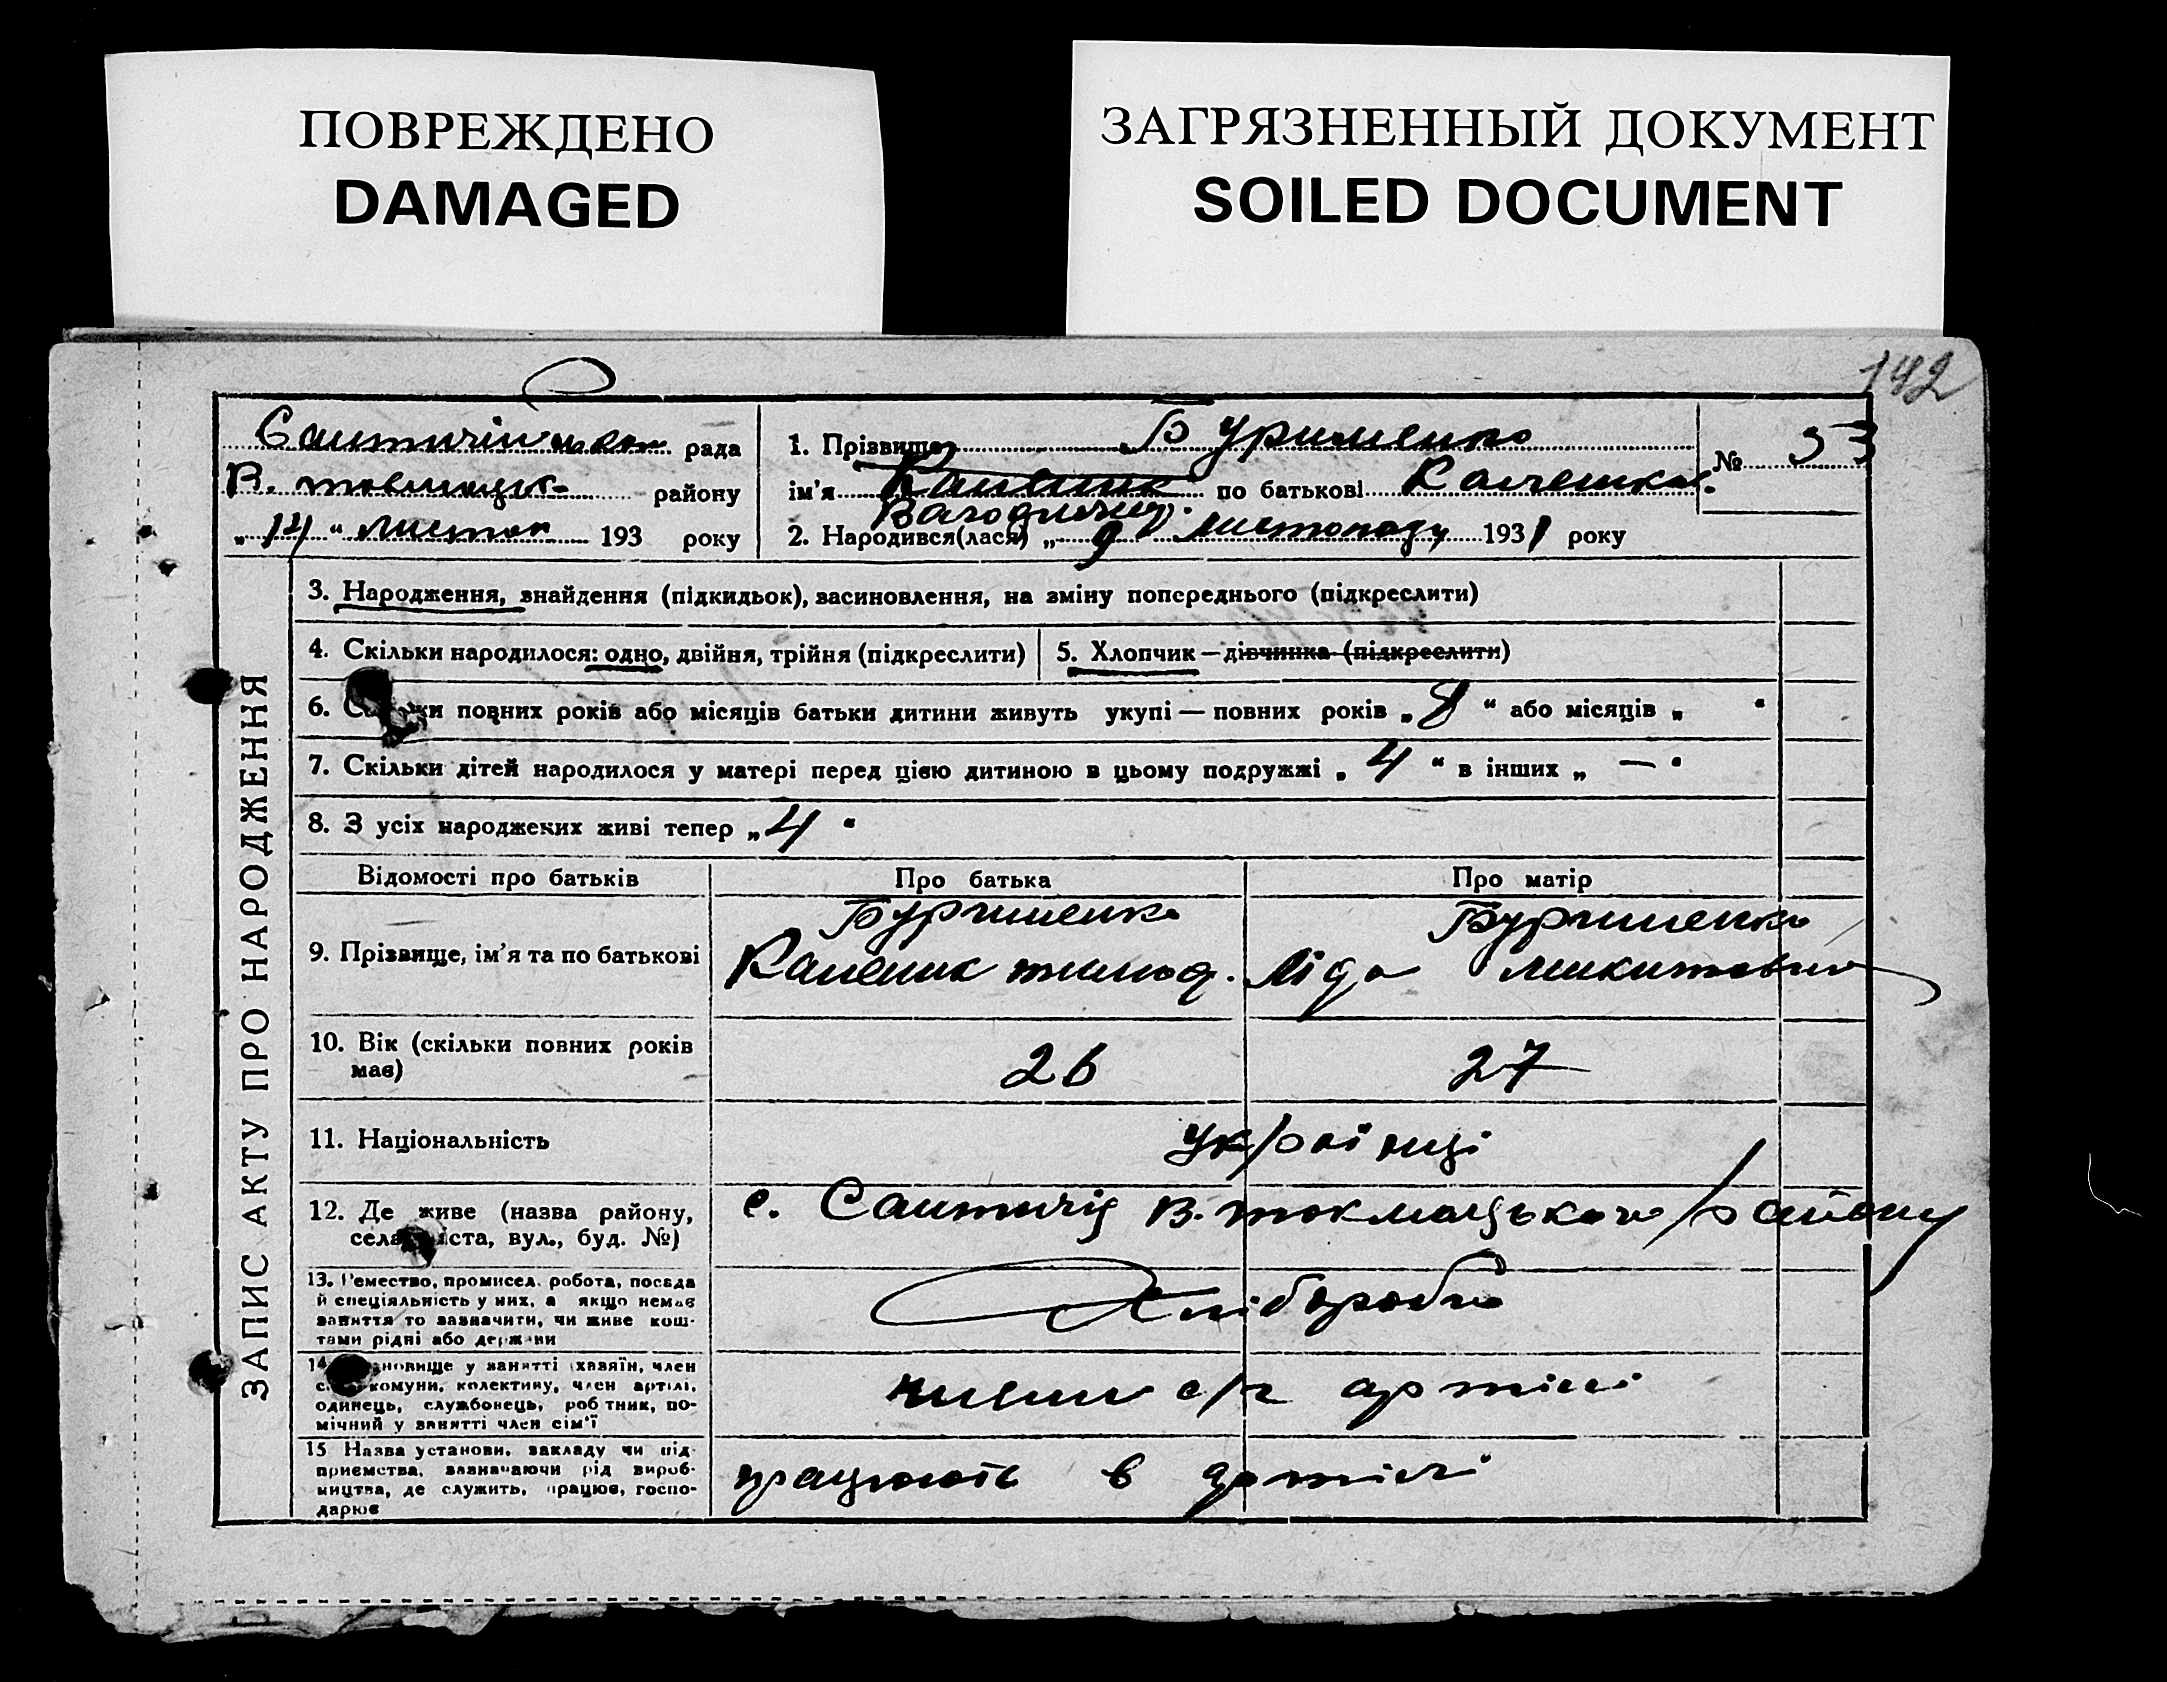 ПОВРЕЖДЕНО
DAMAGED
ЗАГРЯЗНЕННЫЙ ДОКУМЕНТ
SOILED DOCUMENT
142
рада
В. района району
„14“ листоп 193 року
1. Прізвище Буряменко
№ 53
ім’я Каленик по батькові
Володимир.
2. Народився(лася) „9 листопаду 1931 року
ЗАПИС АКТУ ПРО НАРОДЖЕННЯ
3. Народження, знайдення (підкидьок), засиновлення, на зміну попереднього (підкреслити)
4. Скільки народилося: одно, двійня, трійня (підкреслити)
5. Хлопчик — дівчинка (підкреслити)
6. повних років або місяців батьки дитини живуть укупі — повних років „8“ або місяців „ “
7. Скільки дітей народилося у матері перед цією дитиною в цьому подружжі „4“ в інших „ — “
8. З усіх народжених живі тепер „4“
Відомості про батьків Про батька Про матір
9. Прізвище, ім’я та по батькові
Каленик Ліда Микитовна
10. Вік (скільки повних років має)
26 27
11. Національність
Українці
12. Де живе (назва району, села, міста, вул., буд. №)
с. Салтичія В. токмацького району
13. Ремество, промисел, робота, посада
й спеціяльність у них, а якщо немає
заняття то зазначити, чи живе кош-
тами рідні або держави
Хлібороби
14. становище у занятті (хазяїн, член
комуни, колективу, член артілі,
одинець, службонець, робітник, по-
мічний у занятті член сім’ї
члени с/г артілі
15 Назва установи, закладу чи під-
приємства, зазначаючи рід вироб-
ництва, де служить, працює, госпо-
дарює
працюють в артілі